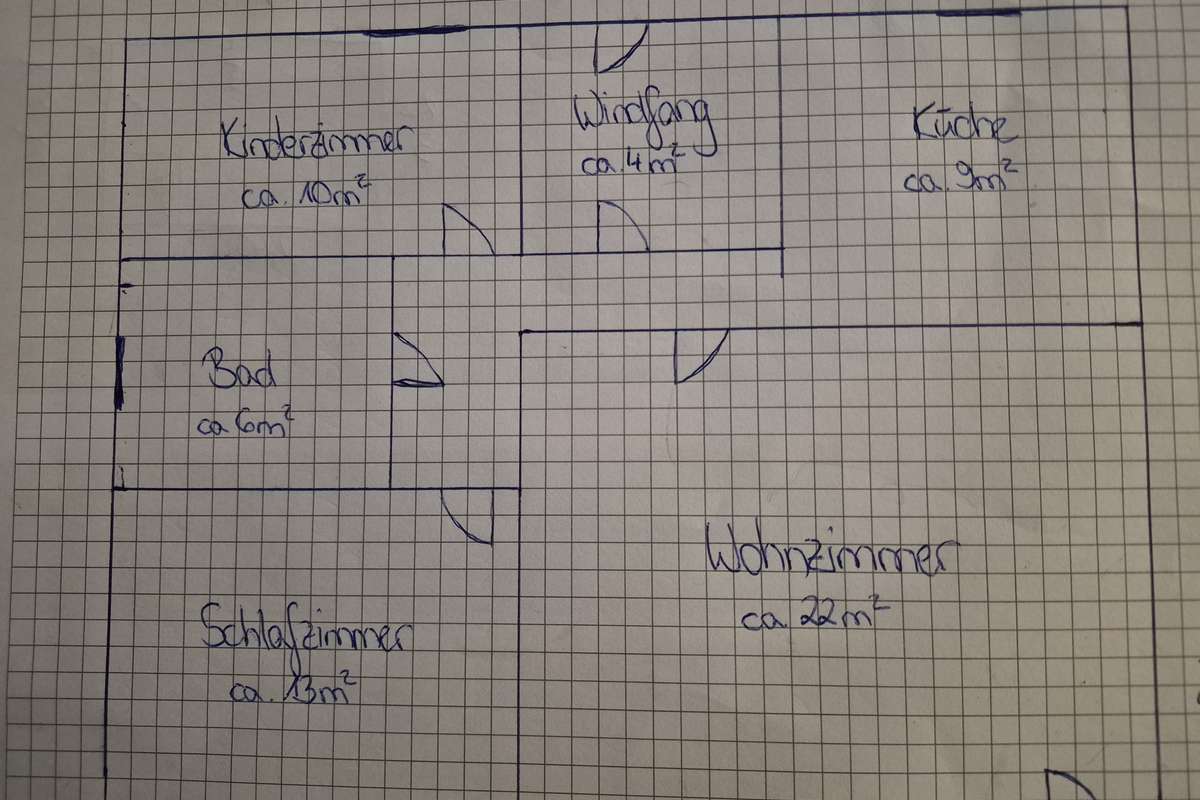 Kinderzimmer
ca. 10m²
Windfang
ca. 4m²
Küche
ca. 9m²
Bad
ca 6m²
Wohnzimmer
ca. 22m²
Schlafzimmer
ca. 13m²